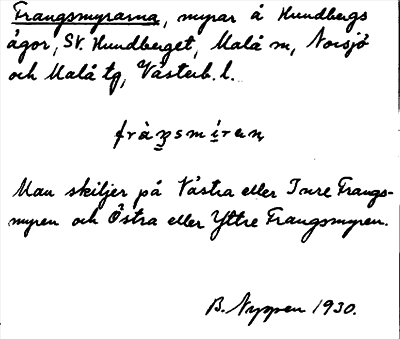 Frangsmyrarna, myrar å Hundbergs
ägor, St. Hundberget, Malå sn, Norsjö
och Malå tg, Västerb. l.
fràŋsmìran
Man skiljer på Västra eller Inre Frangs-
myren och Östra eller Yttre Frangsmyren.
B. Nyman 1930.